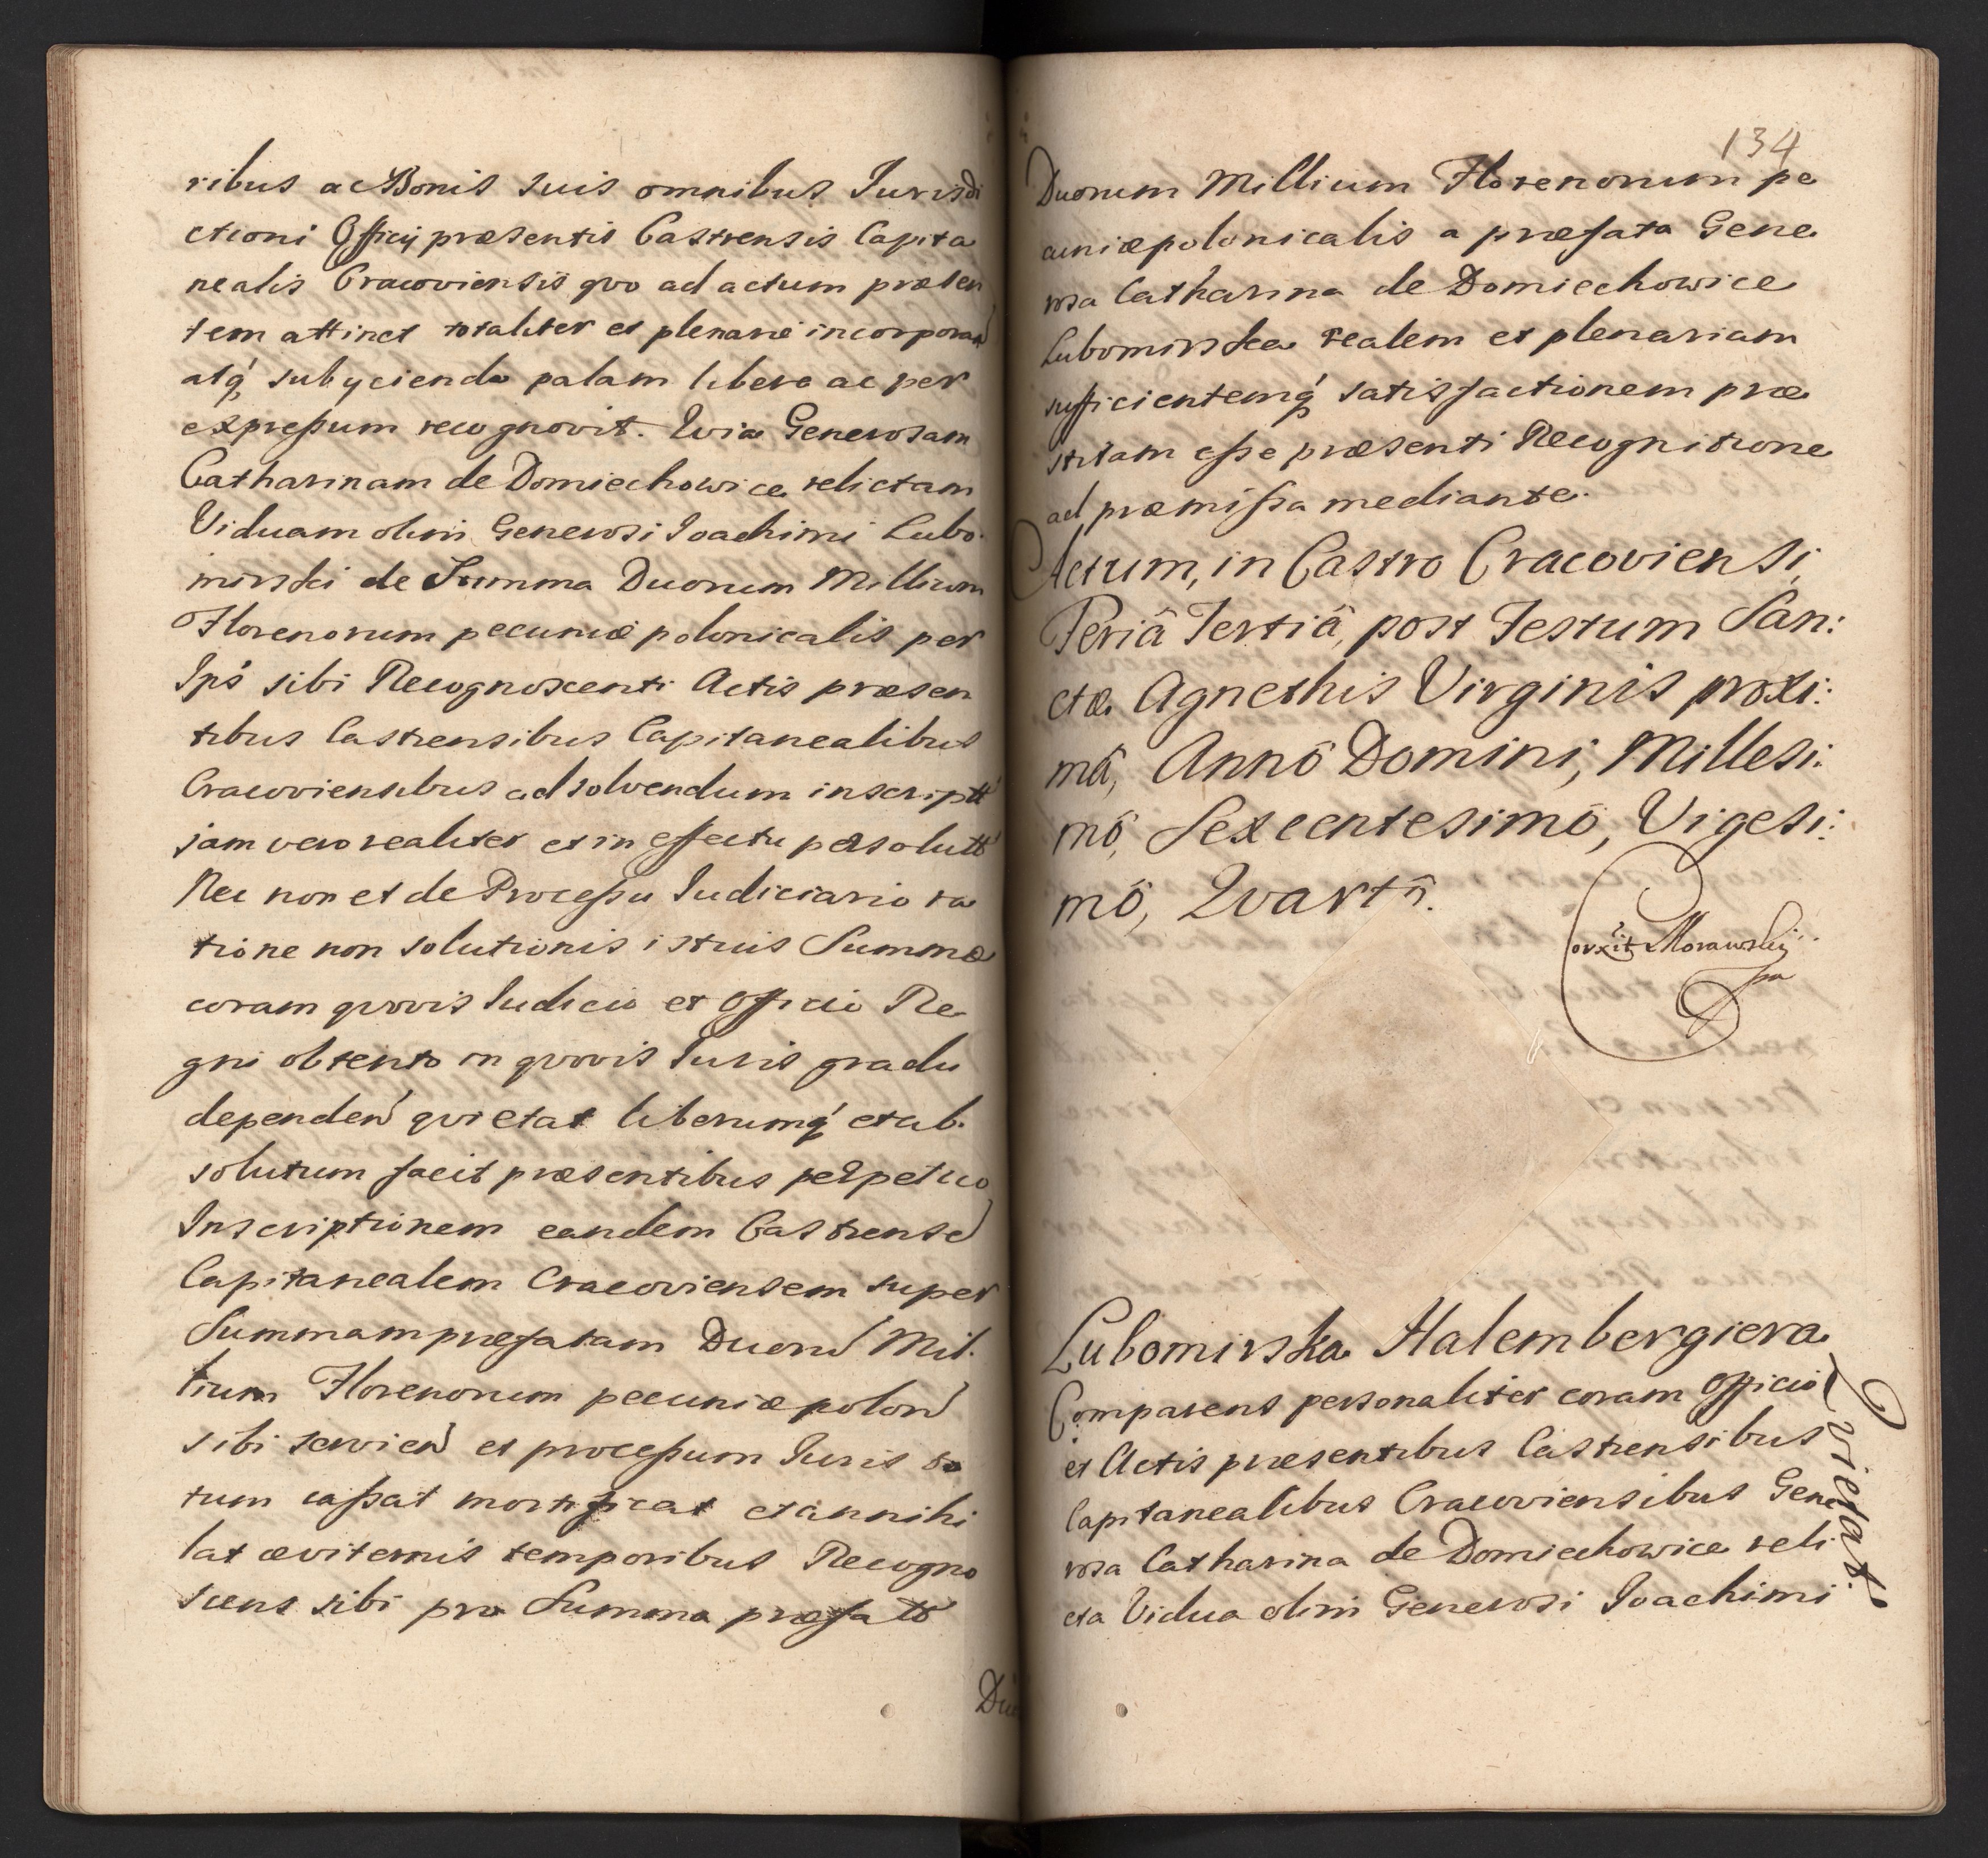 ribus ac Bonis suis omnibus Jurisdi
ctioni Officij præsentis Castrensis Capita
nealis Cracoviensis qvo ad actum præsen
tem attinet totaliter et plenarie incorporan
atq́ subyciendo palam libere ac per
expreßum recognovit. Qvia Generosam
Catharinam de Domiechowice relictam
Viduam olim Generosi Joachimi Lubo
mirski de Summa Duorum Millium
Florenorum pecuniæ polonicalis per
Ips̃ sibi Recognoscenti Actis præsen
tibus Castrensibus Capitanealibus
Cracoviensibus ad solvendum inscriptt
jam vero realiter et in effectu persolutt
Nec non et de Proceßu Judiciario ra
tione non solutionis istius Summæ
coram qvovis Judicio et Officio Re
gni obtento in qvovis Juris gradu
dependen qvietat liberumq́ et ab
solutum facit præsentibus perpetuo
Inscriptionem eandem Castrense
Capitanealem Cracoviensem super
Summam præfatam Duoru Mil
lium Florenorum pecuniæ polon
sibi servien et proceßum Juris to
tum caßat mortificat et annihi
lat æviternis temporibus Recogno
scens sibi pro Summa præfatt
Duo
134
Duorum Millium Florenorum pe
cuniæ polonicalis a præfata Gene
rosa Catharina de Domiechowice
Lubomirska realem et plenariam
sufficientemq́ satisfactionem præ
stitam eße præsenti Recognitione
ad præmißa mediante.
Actum, in Castro Cracoviensi,
Feriâ Tertiâ, post Festum San:
ctæ Agnethis Virginis proxi:
mâ, Annô Domini, Millesi:
mô, Sexcentesimô, Vigesi:
mô, Qvartô.
Corxit Morawskij
mp
Lubomirska Halembergiera
Qvietat.
Comparens personaliter coram Officio
et Actis præsentibus Castrensibus
Capitanealibus Cracoviensibus Gene
rosa Catharina de Domiechowice reli
cta Vidua olim Generosi Joachimi